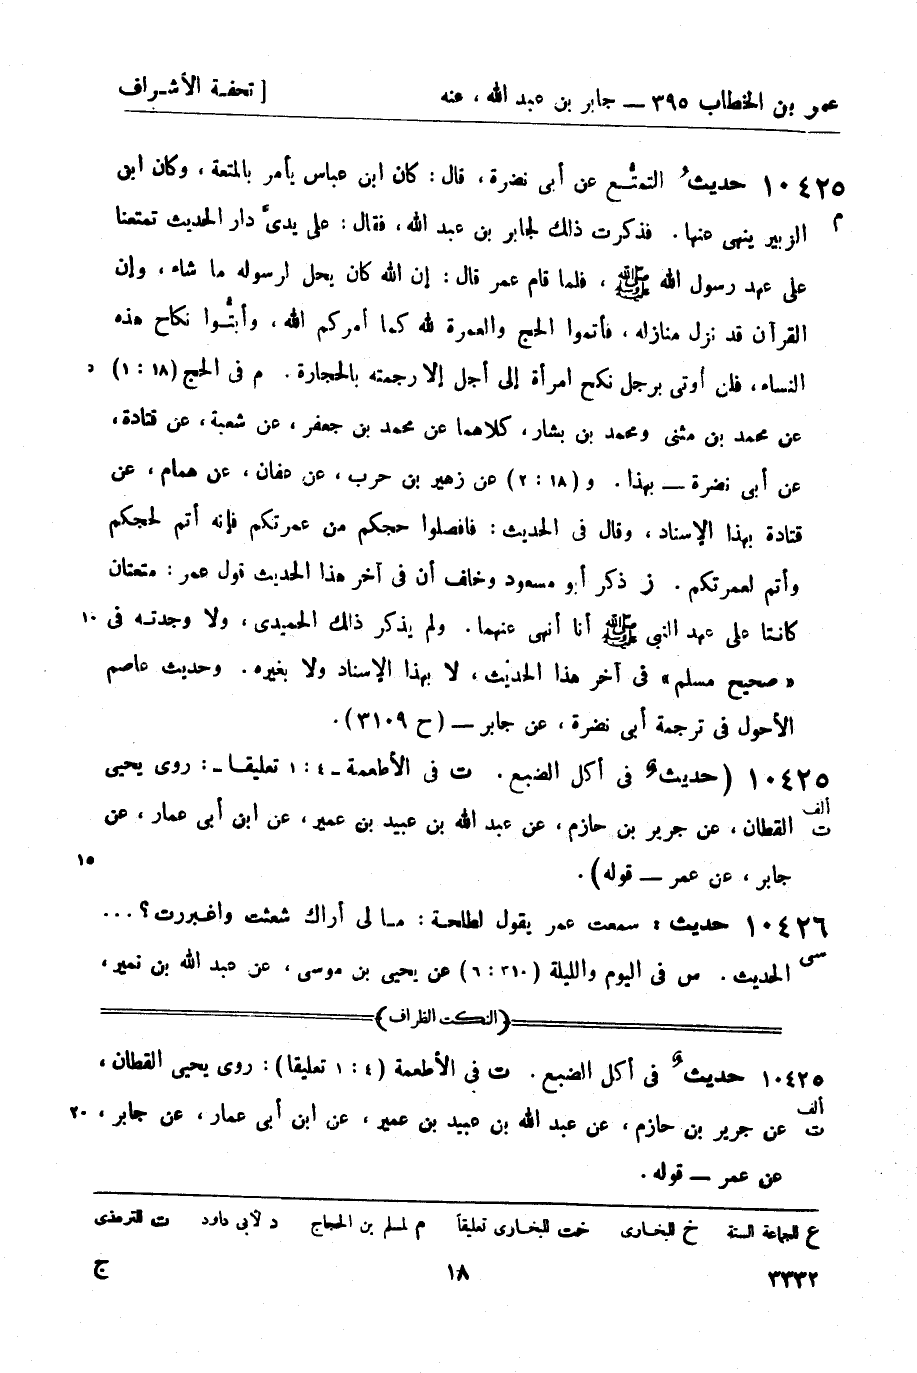 عمر بن الخطاب ٣٩٥ — جابر بن عبد الله ، عنه [ تحفة الأشراف
١٠٤٢٥ حديث التمتع عن أبى نضرة ، قال : كان ابن عباس يأمر بالمتعة ، وكان ابن
م الزبير ينهى عنها . فذكرت ذلك لجابر بن عبد الله ، فقال : على يدىّ دار الحديث تمتعنا
على عهد رسول الله ﷺ ، فلما قام عمر قال : إن الله كان يحل لرسوله ما شاء ، وإن
القرآن قد نزل منازله ، فأتموا الحج والعمرة لله كما أمركم الله ، وأبتُّوا نكاح هذه
النساء ، فلن أوتى برجل نكح امرأة إلى أجل إلا رجمته بالحجارة . م فى الحج (١٨ : ١) ٥
عن محمد بن مثنى ومحمد بن بشار ، كلاهما عن محمد بن جعفر ، عن شعبة ، عن قتادة ،
عن أبى نضرة — بهذا . و (١٨ : ٢) عن زهير بن حرب ، عن عفان ، عن همام ، عن
قتادة بهذا الإسناد ، وقال فى الحديث : فافصلوا حجكم من عمرتكم فإنه أتم لحجكم
وأتم لعمرتكم . ز ذكر أبو مسعود وخلف أن فى آخر هذا الحديث قول عمر : متعتان
كانتا على عهد النبي ﷺ أنا أنهى عنهما . ولم يذكر ذلك الحميدى ، ولا وجدته فى ١٠
« صحيح مسلم » فى آخر هذا الحديث ، لا بهذا الإسناد ولا بغيره . وحديث عاصم
الأحول فى ترجمة أبى نضرة ، عن جابر — (ح ٣١٠٩) .
١٠٤٢٥ (حديث فى أكل الضبع . ت فى الأطعمة - ٤ : ١ تعليقا - : روى يحيى
ألف
ت القطان ، عن جرير بن حازم ، عن عبد الله بن عبيد بن عمير ، عن ابن أبى عمار ، عن
جابر ، عن عمر — قوله) . ١٥
١٠٤٢٦ حديث : سمعت عمر يقول لطلحة : مالى أراك شعثت واغبررت ؟ ...
سى الحديث . س فى اليوم والليلة (٣١٠ : ٦) عن يحيى بن موسى ، عن عبد الله بن نمير ،
(النكت الظراف)
١٠٤٢٥ حديث فى أكل الضبع . ت فى الأطعمة (٤ : ١ تعليقا) : روى يحيى القطان ،
ألف
ت عن جرير بن حازم ، عن عبد الله بن عبيد بن عمير ، عن ابن أبى عمار ، عن جابر ، ٢٠
عن عمر — قوله .
ع للجماعة الستة خ للبخارى خت للبخارى تعليقاً م لمسلم بن الحجاج د لأبى داود ت للترمذى
٣٣٣٢ ١٨ ج